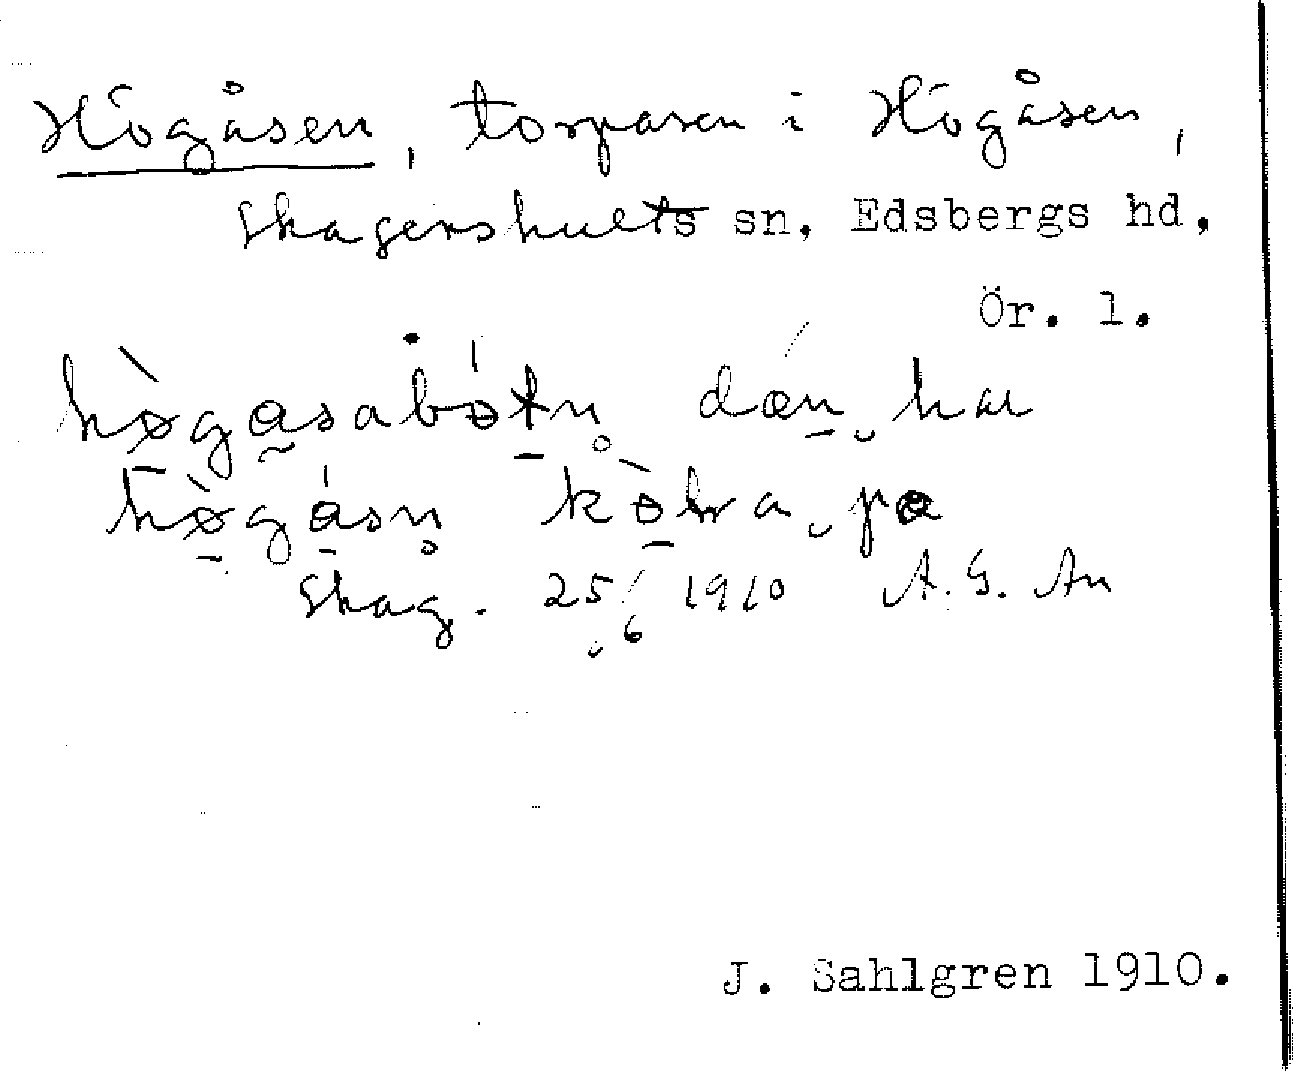 Högåsen, torparen i Högåsen,
Skagershults sn, Edsbergs hd,
Ör. l.
hø̀gasabótn̥ dǽn har
hø̀gásn̥ kò̱ra pa
Skag. 25/6 1910 A. G. An
J. Sahlgren 1910.